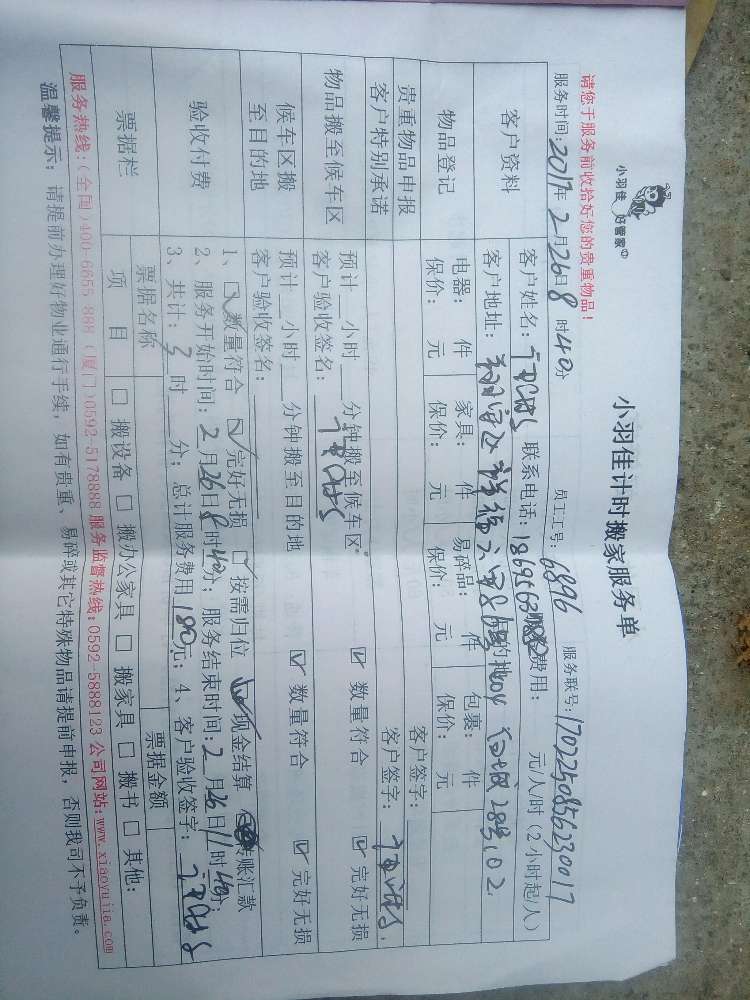 小羽佳 好管家
小羽佳计时搬家服务单
请您于服务前收拾好您的贵重物品！
服务时间：2017年2月26日8时40分 员工工号：6896 服务联号：1702250856230017
客户资料 客户姓名： 联系电话： 费用： 元/人时（2小时起/人）
客户地址： 目的地
物品登记 电器： 件 家具： 件 易碎品： 件 包裹： 件
保价： 元 保价： 元 保价： 元 保价： 元
贵重物品申报 客户签字：
客户特别承诺 客户签字：
物品搬至候车区 预计__小时__分钟搬至候车区。 ☑ 数量符合 ☑ 完好无损
客户验收签名：
候车区搬至目的地 预计__小时__分钟搬至目的地 ☑ 数量符合 ☑ 完好无损
客户验收签名：
验收付费 1、☑数量符合 ☑完好无损 ☑按需归位 ☑现金结算 转账汇款
2、服务开始时间：2月26日8时40分；服务结束时间：2月26日11时40分；
3、共计：3时__分；总计服务费用180元；4、客户验收签字：
票据栏 票据名称 票据金额
项目 □ 搬设备 □ 搬办公家具 □ 搬家具 □ 搬书 □ 其他：
服务热线：（全国）400-6655-888（厦门）0592-5178888 服务监督热线：0592-5888123 公司网站：www.xiaoyujia.com
温馨提示：请提前办理好物业通行手续，如有贵重、易碎或其它特殊物品请提前申报，否则我司不予负责。